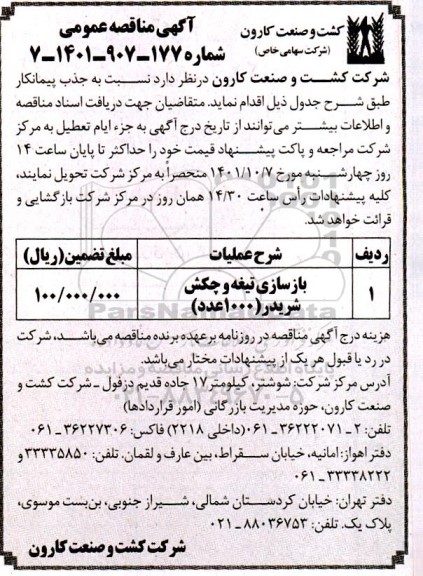 کشت و صنعت کارون
(شرکت سهامی خاص)
آگهی مناقصه عمومی
شماره ۱۷۷-۹۰۷-۱۴۰۱-۷
شرکت کشت و صنعت کارون درنظر دارد نسبت به جذب پیمانکار
طبق شرح جدول ذیل اقدام نماید. متقاضیان جهت دریافت اسناد مناقصه
و اطلاعات بیشتر می‌توانند از تاریخ درج آگهی به جزء ایام تعطیل به مرکز
شرکت مراجعه و پاکت پیشنهاد قیمت خود را حداکثر تا پایان ساعت ۱۴
روز چهارشنبه مورخ ۱۴۰۱/۱۰/۷ منحصراً به مرکز شرکت تحویل نمایند،
کلیه پیشنهادات رأس ساعت ۱۴/۳۰ همان روز در مرکز شرکت بازگشایی و
قرائت خواهد شد.
ردیف شرح عملیات مبلغ تضمین (ریال)
۱ بازسازی تیغه و چکش شریدر (۱۰۰۰عدد) ۱۰۰/۰۰۰/۰۰۰
هزینه درج آگهی مناقصه در روزنامه برعهده برنده مناقصه می‌باشد، شرکت
در رد یا قبول هر یک از پیشنهادات مختار می‌باشد.
آدرس مرکز شرکت: شوشتر، کیلومتر۱۷ جاده قدیم دزفول ـ شرکت کشت و
صنعت کارون، حوزه مدیریت بازرگانی (امور قراردادها)
تلفن: ۲ ـ ۳۶۲۲۲۰۷۱-۰۶۱(داخلی ۲۲۱۸) فاکس: ۳۶۲۲۷۳۰۶-۰۶۱
دفتر اهواز: امانیه، خیابان سقراط، بین عارف و لقمان. تلفن: ۳۳۳۳۵۸۵۰و
۳۳۳۳۸۲۲۲-۰۶۱
دفتر تهران: خیابان کردستان شمالی، شیراز جنوبی، بن‌بست موسوی،
پلاک یک. تلفن: ۸۸۰۳۶۷۵۳-۰۲۱
شرکت کشت و صنعت کارون